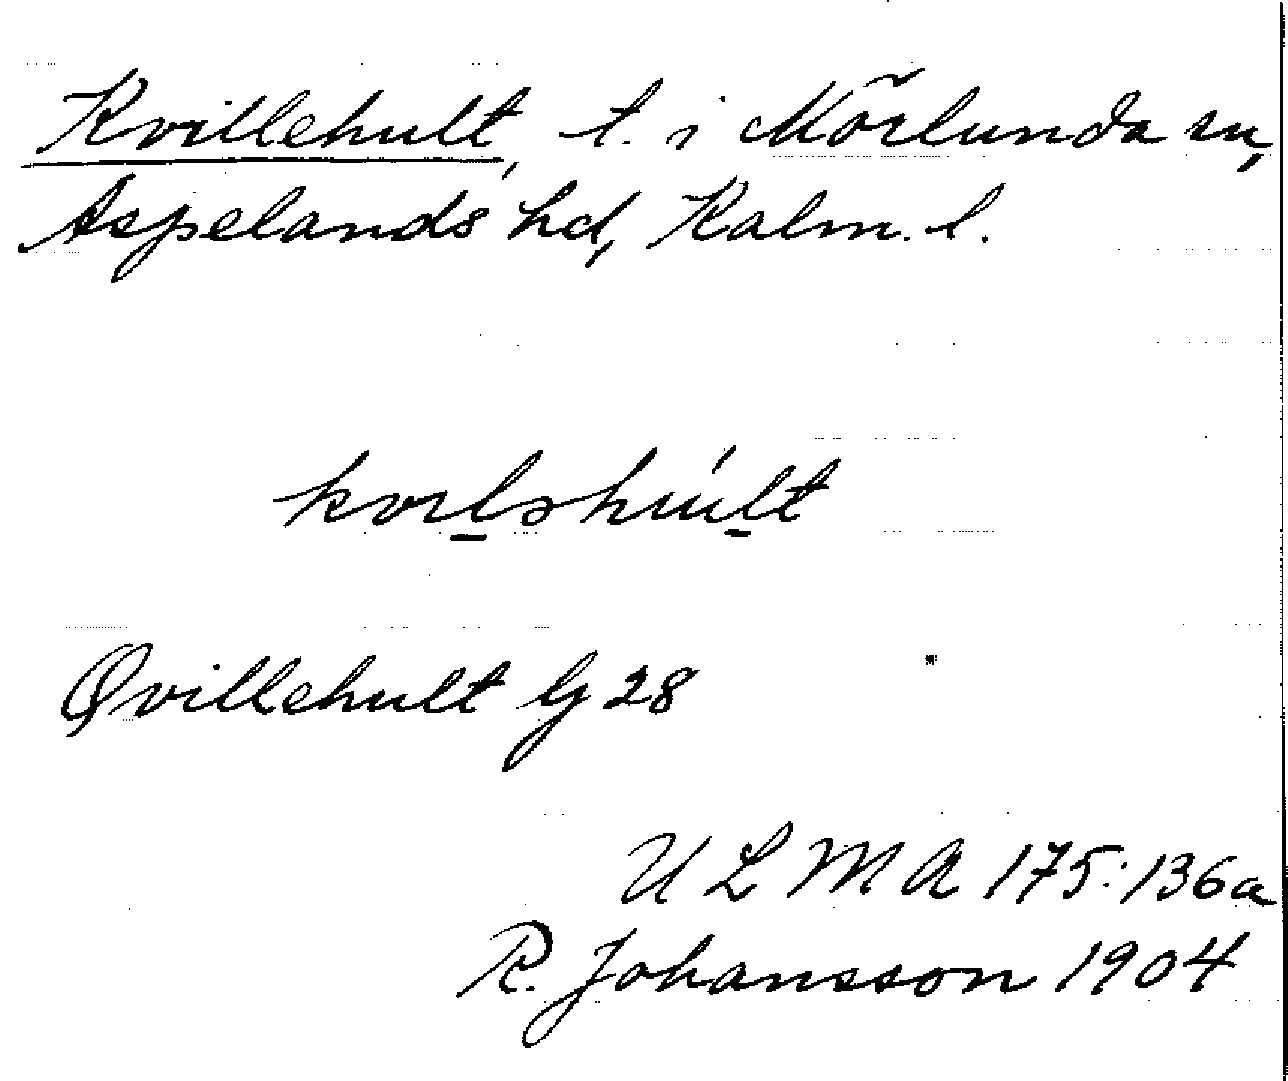 Kvillehult, t. i Mörlunda sn,
Aspelands hd, Kalm. l.
Qvillehult G 28
ULMA 175:136a
R. Johansson 1904